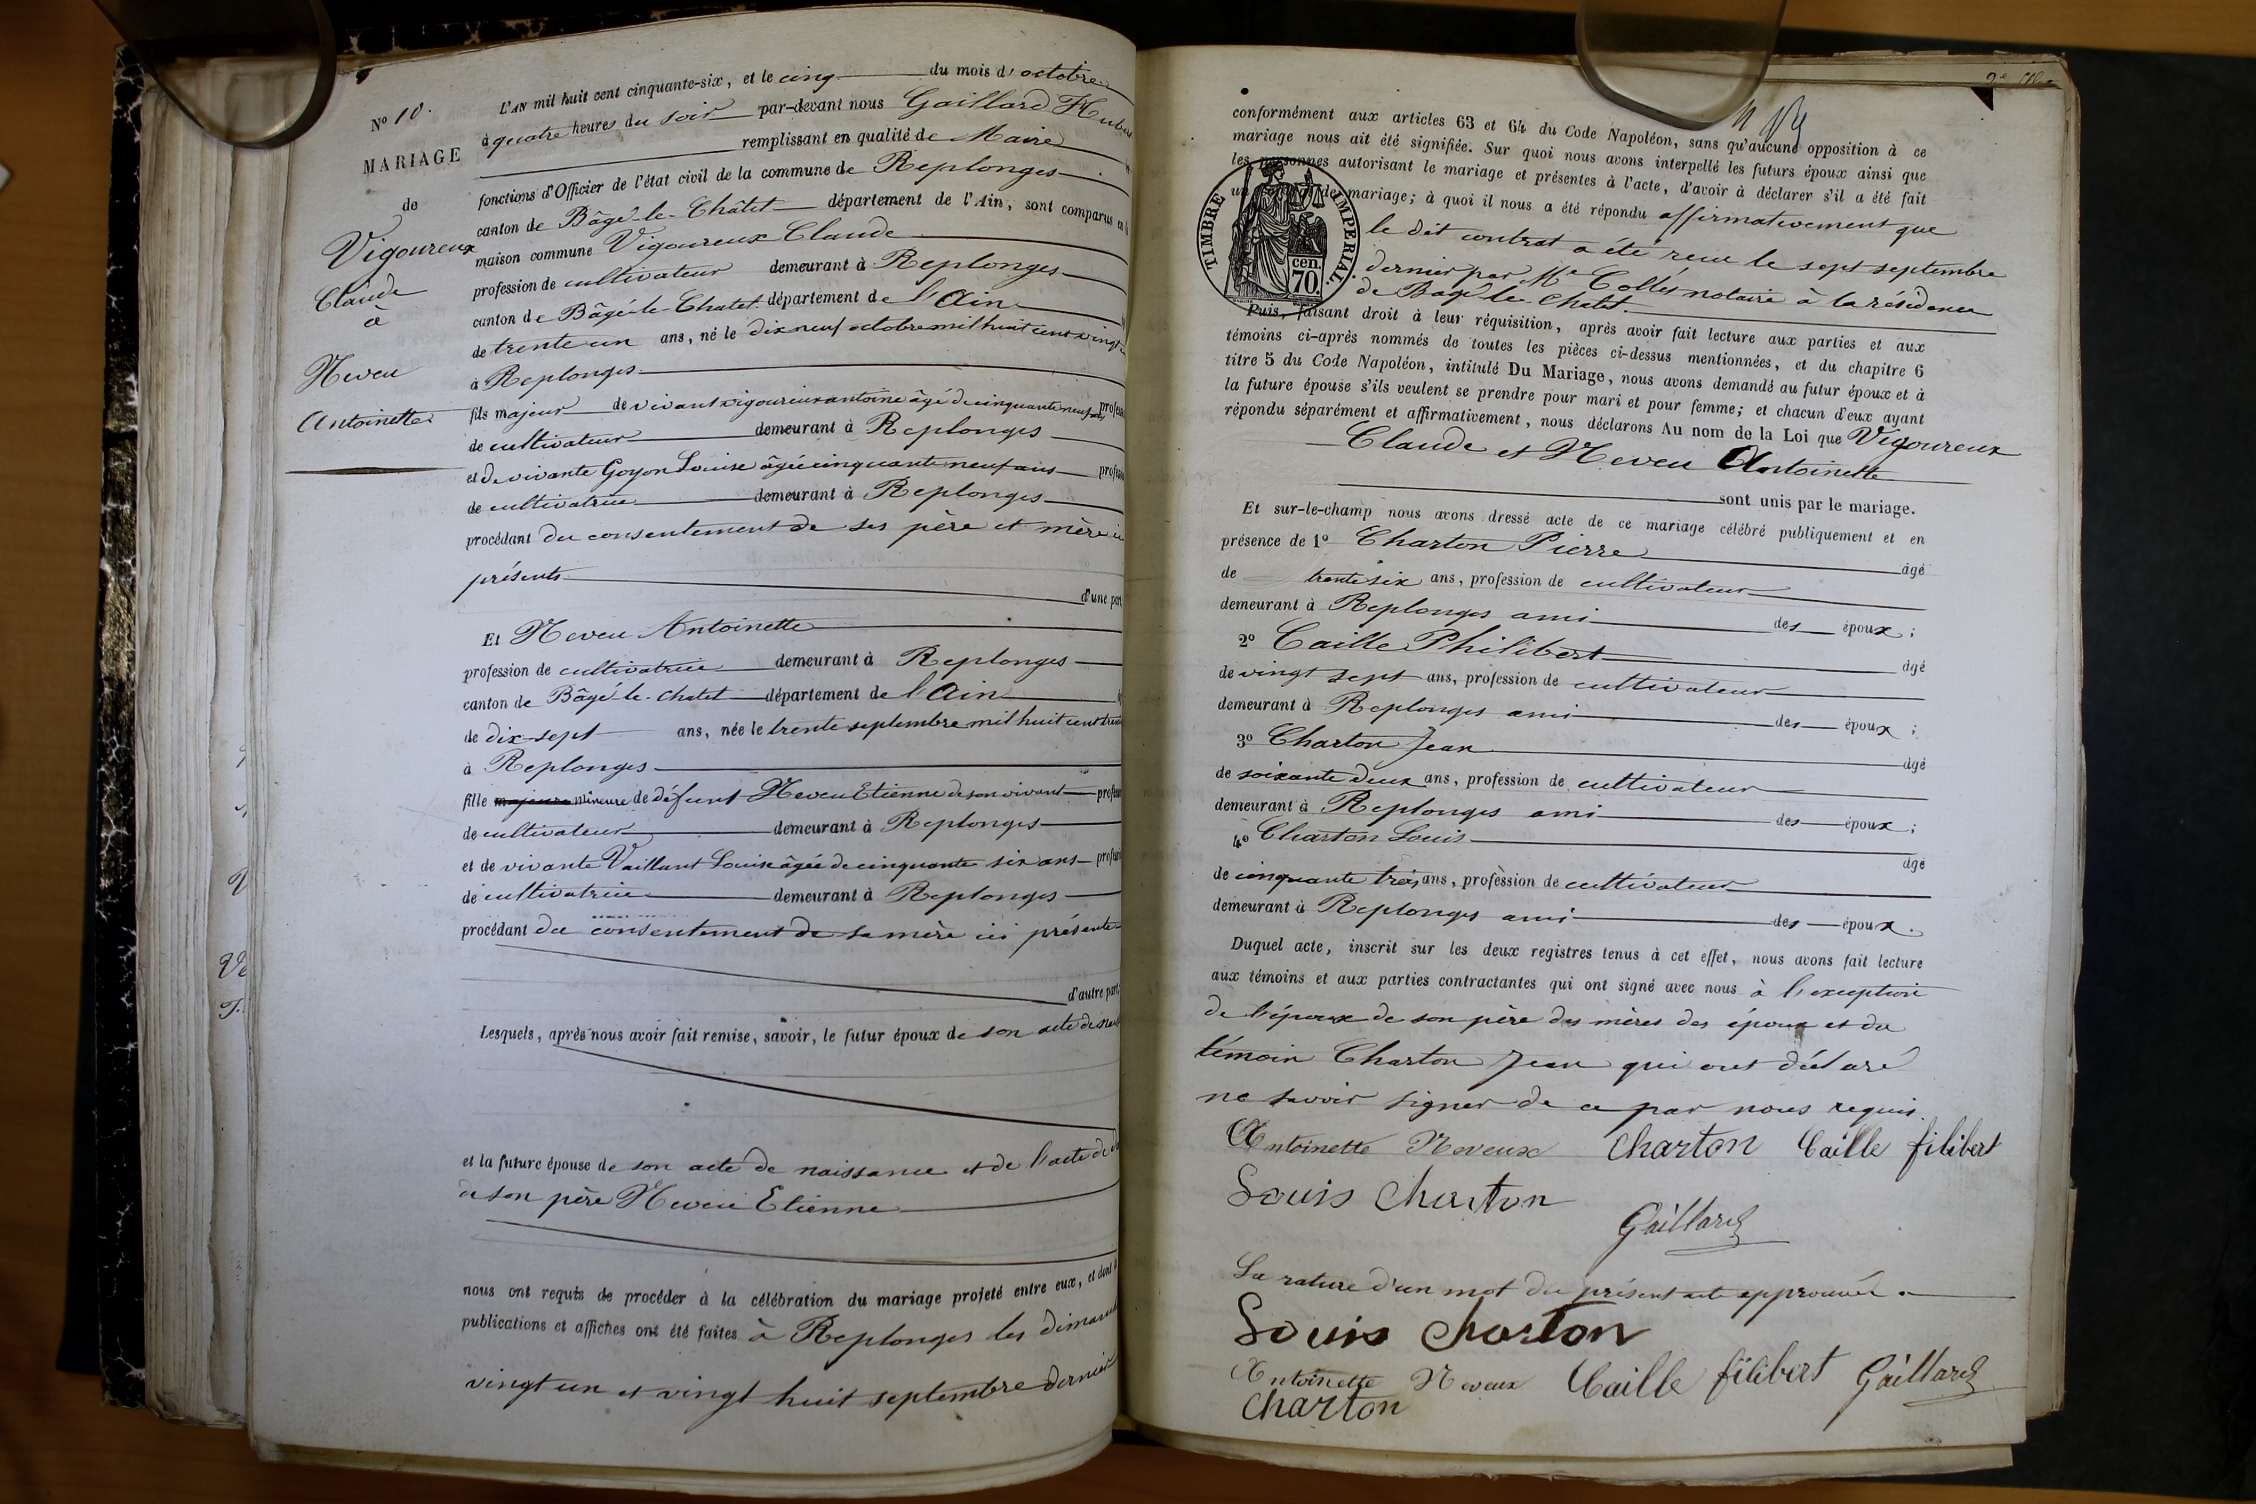 N° 10.
MARIAGE
de
Vigoureux
Claude
à
Neveu
Antoinette
L'AN mil huit cent cinquante-six, et le cinq du mois d'octobre
à quatre heures du soir par-devant nous Gaillard
remplissant en qualité de Maire
fonctions d'Officier de l'état civil de la commune de Replonges
canton de Bâgé-le-Châtel département de l'Ain, sont comparus en la
maison commune Vigoureux Claude
profession de cultivateur demeurant à Replonges
canton de Bâgé-le-Chatel département de l'Ain
de trente un ans, né le dix neuf octobre mil huit cent vingt
à Replonges
fils majeur de vivant vigoureux antoine âgé de cinquante neuf ans profess
de cultivateur demeurant à Replonges
et de vivante Goyon Louise âgée cinquante neuf ans profess
de cultivatrice demeurant à Replonges
procédant du consentement de ses père et mère ici
présents
d'une part
Et Neveu Antoinette
profession de cultivatrice demeurant à Replonges
canton de Bâgé-le-chatel département de l'Ain
de dix-sept ans, née le trente septembre mil huit cent trente
à Replonges
fille majeure mineure de défunt Neveu Etienne de son vivant profess
de cultivateur demeurant à Replonges
et de vivante Vaillant Louise âgée de cinquante six ans profess
de cultivatrice demeurant à Replonges
procédant du consentement de sa mère ici présente
d'autre part;
Lesquels, après nous avoir fait remise, savoir, le futur époux de son acte de nais
et la future épouse de son acte de naissance et de l'acte de dé
de son père Neveu Etienne
nous ont requis de procéder à la célébration du mariage projeté entre eux, et dont
publications et affiches ont été faites à Replonges les dimanch
vingt un et vingt huit septembre dernier
conformément aux articles 63 et 64 du Code Napoléon, sans qu'aucune opposition à ce
mariage nous ait été signifiée. Sur quoi nous avons interpellé les futurs époux ainsi que
les personnes autorisant le mariage et présentes à l'acte, d'avoir à déclarer s'il a été fait
un de mariage; à quoi il nous a été répondu affirmativement que
le dit contrat a été reçu le sept septembre
dernier par Me Collés notaire à la résidence
de Bagé le Chatel.
TIMBRE IMPERIAL.
cen.
70.
Puis, faisant droit à leur réquisition, après avoir fait lecture aux parties et aux
témoins ci-après nommés de toutes les pièces ci-dessus mentionnées, et du chapitre 6
titre 5 du Code Napoléon, intitulé Du Mariage, nous avons demandé au futur époux et à
la future épouse s'ils veulent se prendre pour mari et pour femme; et chacun d'eux ayant
répondu séparément et affirmativement, nous déclarons Au nom de la Loi que Vigoureux
Claude et Neveu Antoinette
sont unis par le mariage.
Et sur-le-champ nous avons dressé acte de ce mariage célébré publiquement et en
présence de 1° Charton Pierre âgé
de trente six ans, profession de cultivateur
demeurant à Replonges ami des époux;
2° Caille Philibert âgé
de vingt sept ans, profession de cultivateur
demeurant à Replonges ami des époux;
3° Charton Jean âgé
de soixante deux ans, profession de cultivateur
demeurant à Replonges ami des époux;
4° Charton Louis âgé
de cinquante trois ans, profession de cultivateur
demeurant à Replonges ami des époux.
Duquel acte, inscrit sur les deux registres tenus à cet effet, nous avons fait lecture
aux témoins et aux parties contractantes qui ont signé avec nous à l'exception
de l'époux de son père des mères des époux et du
témoin Charton Jean qui ont déclaré
ne savoir signer de ce par nous requis.
Antoinette Neveux Charton Caille filibert
Louis Charton
Gaillard
La rature d'un mot du présent acte approuvée.
Louis Charton
Antoinette Neveux Caille filibert Gaillard
Charton